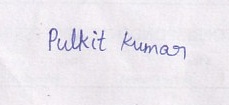 Pulkit Kumar